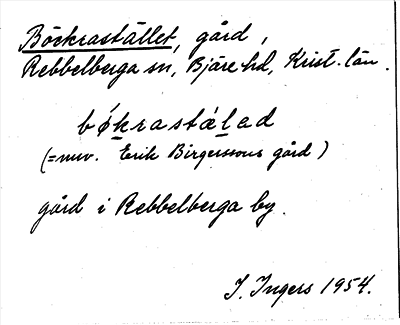 Böckrastället, gård,
Rebbelberga sn, Bjäre hd, Krist. län.
bǿkrastælad
(= nuv. Erik Birgerssons gård)
gård i Rebbelberga by.
I. Ingers 1954.